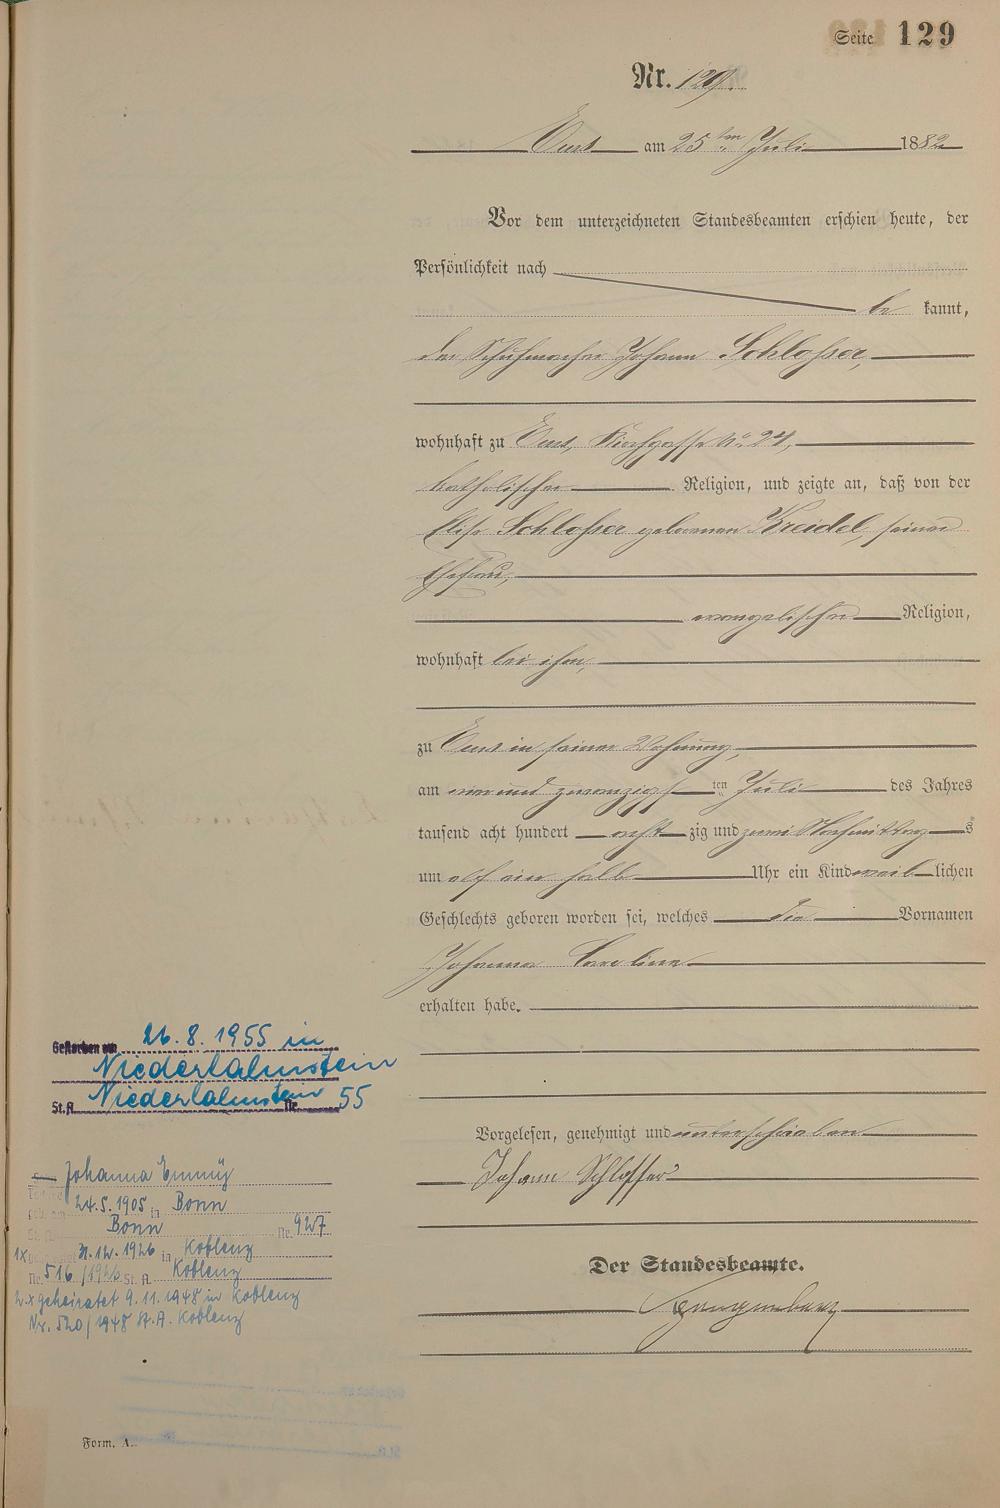 Seite 129
Nr. 129.
Ems am 25ten Juli 1882
Vor dem unterzeichneten Standesbeamten erschien heute, der
Persönlichkeit nach
be kannt,
der Schuhmacher Johann Schlosser,
wohnhaft zu Ems, Kirchgasse No. 24,
katholischer Religion, und zeigte an, daß von der
Elise Schlosser geborenen Kreidel, seiner
Ehefrau,
evangelischer Religion,
wohnhaft bei ihm,
zu Ems in seiner Wohnung,
am vier und zwanzigsten Juli des Jahres
tausend acht hundert acht zig und zwei Nachmittag s
um elf ein halb Uhr ein Kind weib lichen
Geschlechts geboren worden sei, welches die Vornamen
Johanna Caroline
erhalten habe.
Vorgelesen, genehmigt und unterschrieben
Johann Schlosser
Der Standesbeamte.
Gestorben am 26.8.1955 in
Niederlahnstein
St.A. Niederlahnstein Nr. 55
Johanna Emmy
24.5.1905 in Bonn
Bonn Nr. 927
1x 31.12.1926 in Koblenz
Nr. 516/1926 St. A. Koblenz
2.x geheiratet 9.11.1948 in Koblenz
Nr. 520/1948 St.A. Koblenz
Form. A.